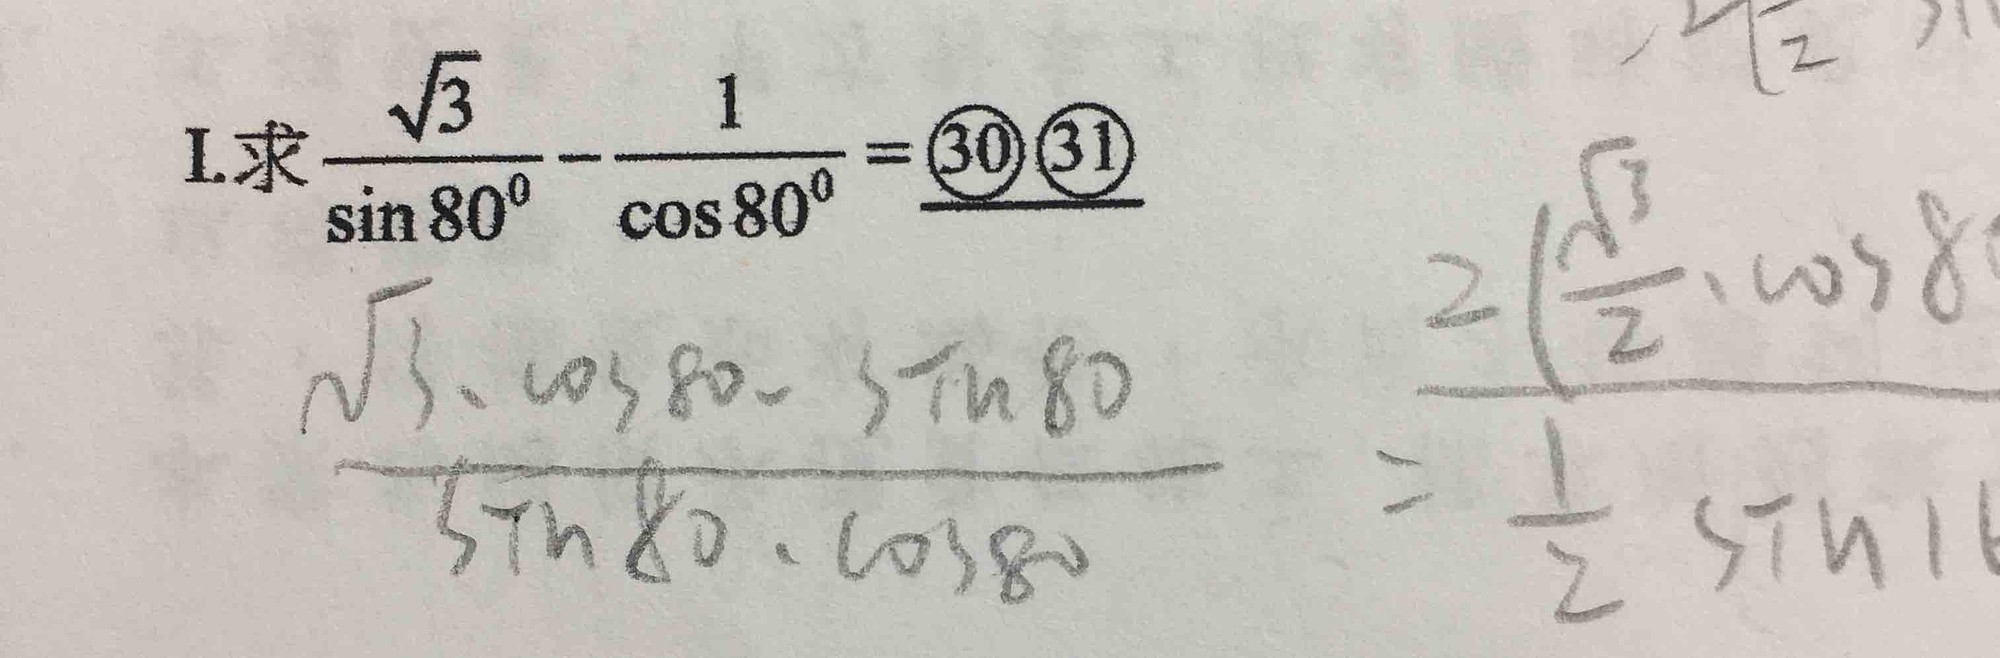 I.求 √3/sin80⁰ − 1/cos80⁰ = ㉚㉛
√3·cos80 - sin80 / sin80·cos80
= 2(√3/2·cos80 / 1/2 sin16